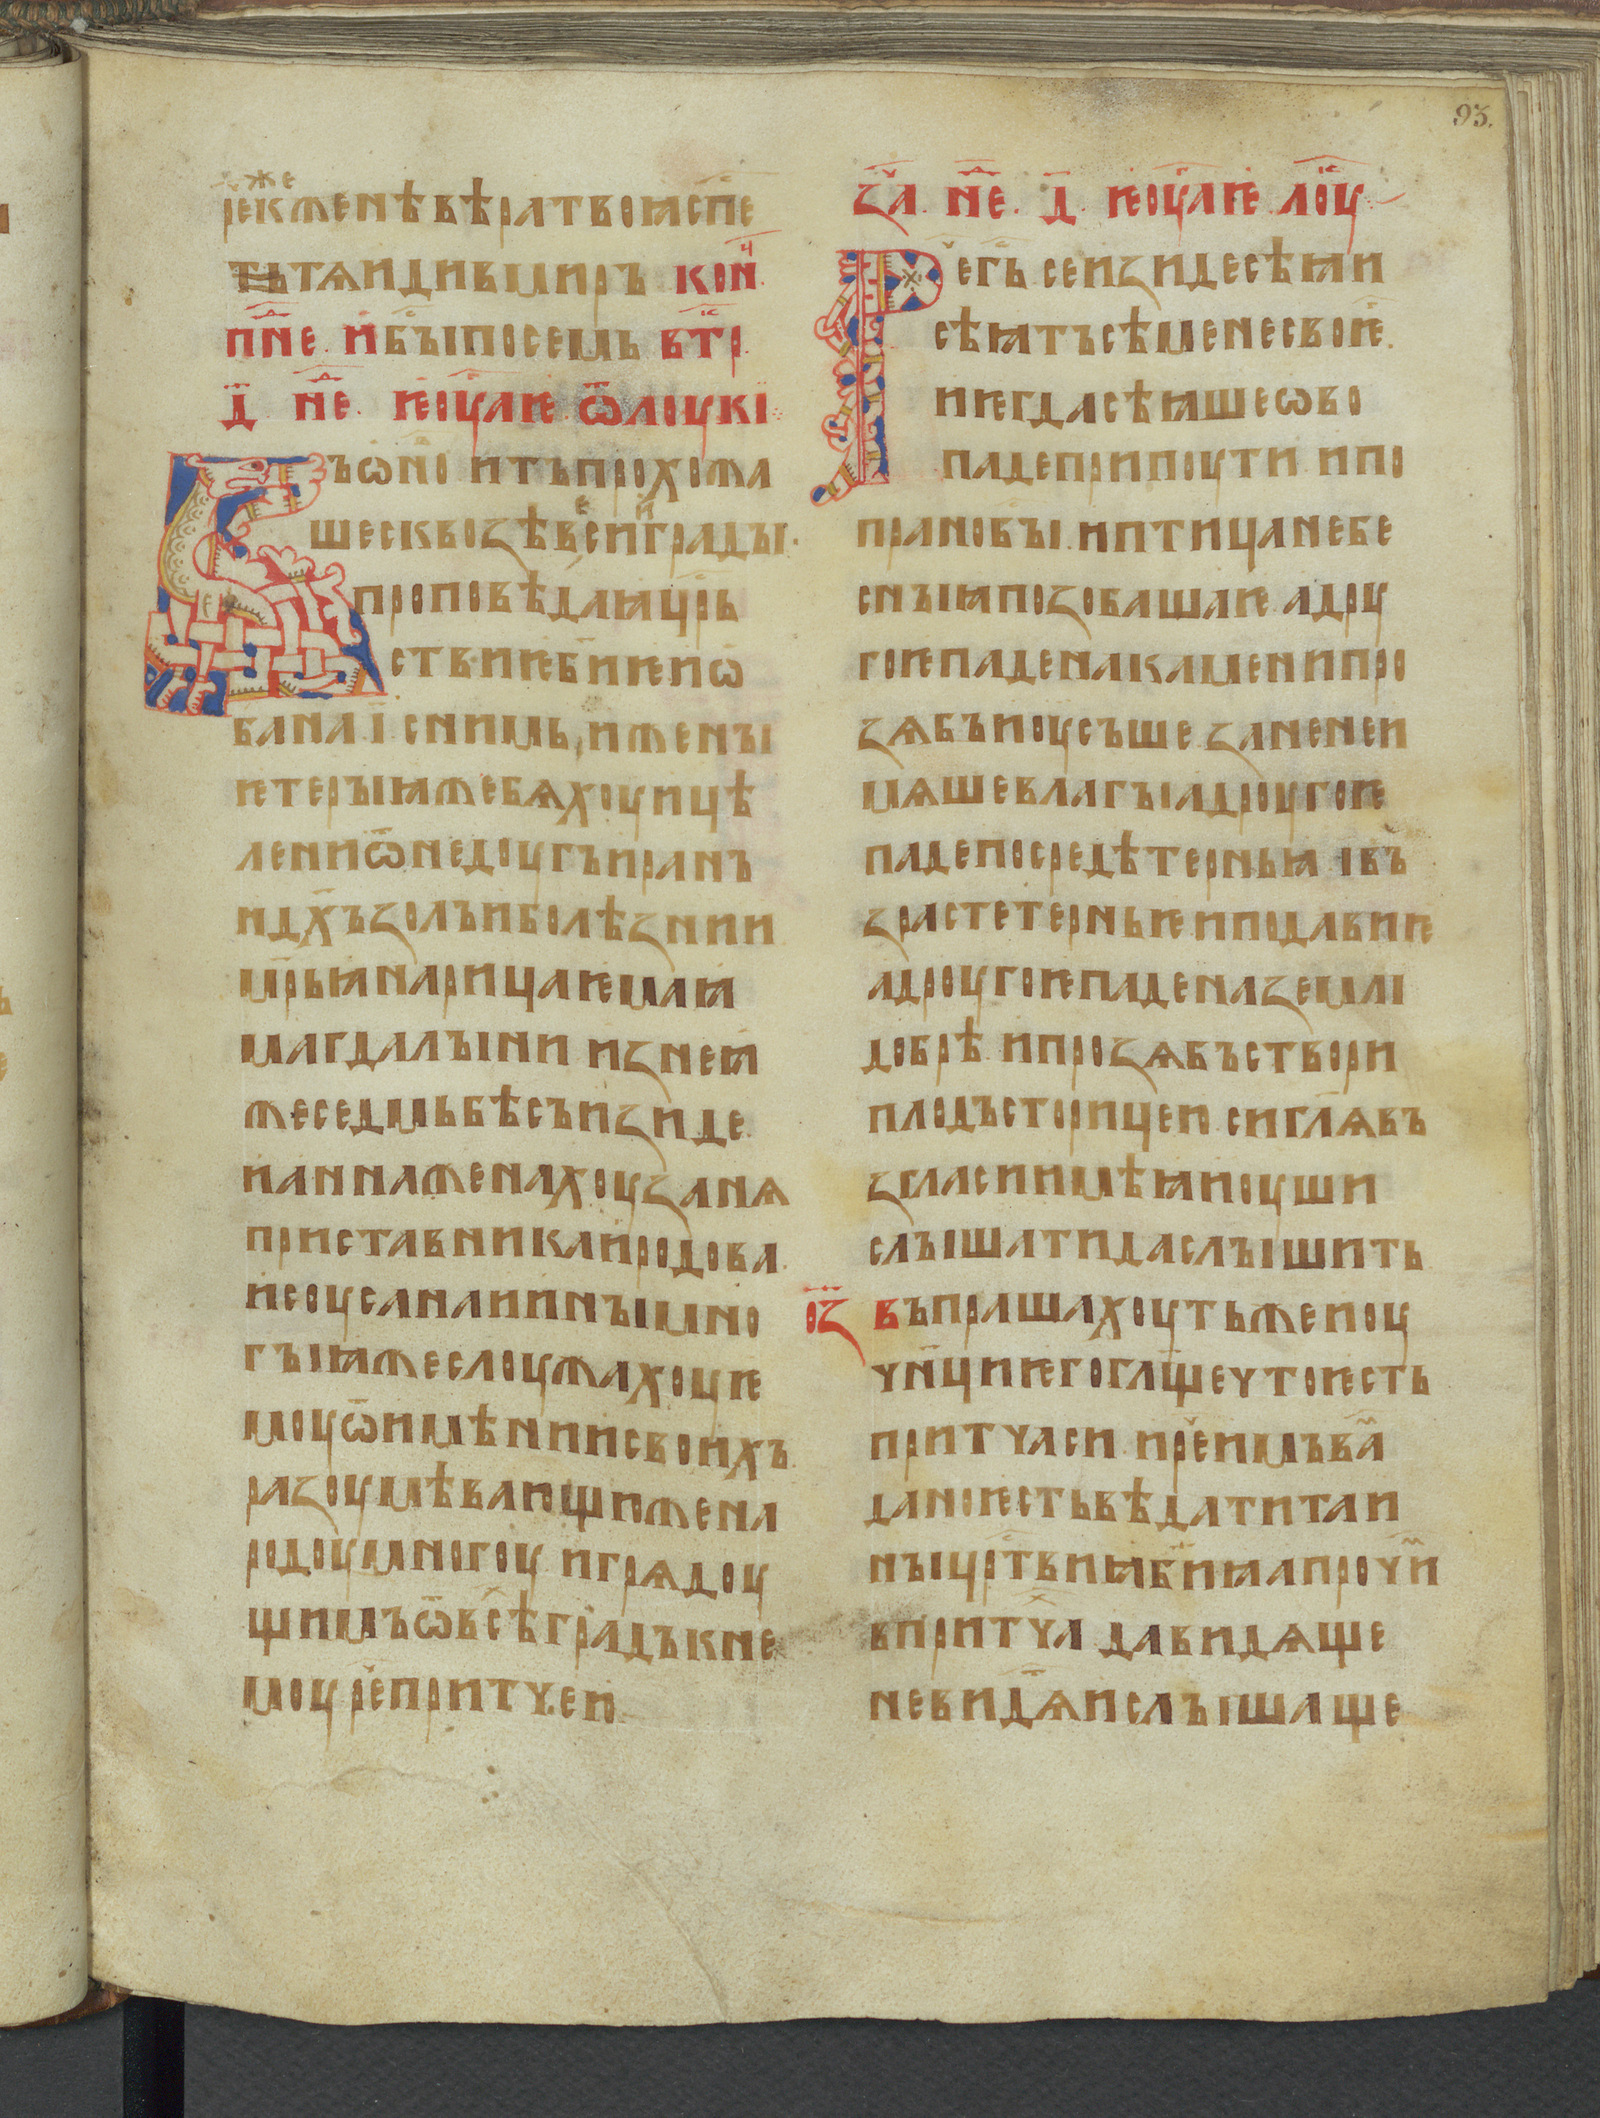 93.
рекъженѣ вѣра твоꙗ сп҃е
тьтѧ иди в миръ кон҃ч
п҃нⷣе. и бы҃ по семь втⷪр҇.
д҃. нⷣе. ѥоуⷢ҇аⷩ҇ѥ. ѿ лоукⷤі
Ъ ѡно и тъ прохожа
ше сквозѣ вⷭ҇си и градъі.
проповѣдаꙗ црⷭ҇ь
ствиѥ б҃иѥ и ѡ
ба на і҃ с нимь, и женъі
ѥтеръі ꙗже бѧхоу ицѣ
лени ѿ недоугъ и ранъ
и дх҃ъ золъ и болѣзнии
мр҃ьꙗ нарицаѥмаꙗ
магдалъіни из неꙗ
же седмь бѣсъ изиде
и анна жена хоузанѧ
приставника иродова.
и соусана и инъі мно
гъі ꙗже слоужахоу ѥ
моу ѿ имѣнии своихъ.
разоумѣвающи же на
родоу многоу и грѧдоу
щимъ ѿ всѣⷯ градъ к не
моу реⷱ҇ притчею
за҃ч. нⷣе. д҃. ѥоуⷢ҇аⷩ҇ѥ. лоуⷦ҇
Реⷱ҇ гⷭ҇ь се изиде сѣꙗи
сѣꙗтъ сѣмене своѥⷢ҇.
и ѥгда сѣꙗше ѡво
паде при поути и по
прано бъі. и птица небе
снъіꙗ позобаша ѥ. а дроу
гоѥ паде на камени и про
зѧбъ и оусъше зане не и
мѧше влагъі а дроугоѥ
паде посредѣ терньꙗ і въ
зрасте терньѥ и подави ѥ
а дроугоѥ паде на земли
добрѣ. и прозѧбъ створи
плодъ сторицею. си гл҃ѧ въ
згласи имѣꙗи оуши
слъішати да слъішить
о҃з въпрашахоуть же и оу
чн҃ци ѥго гл҃ще что ѥсть
притча си. и реⷱ҇ имъ ваⷨ
дано ѥсть вѣдати таи
нъі црⷭ҇твиꙗ б҃иꙗ а прочиⷨ
в притчаⷯ да видѧще
не видѧⷮ и слъішаще